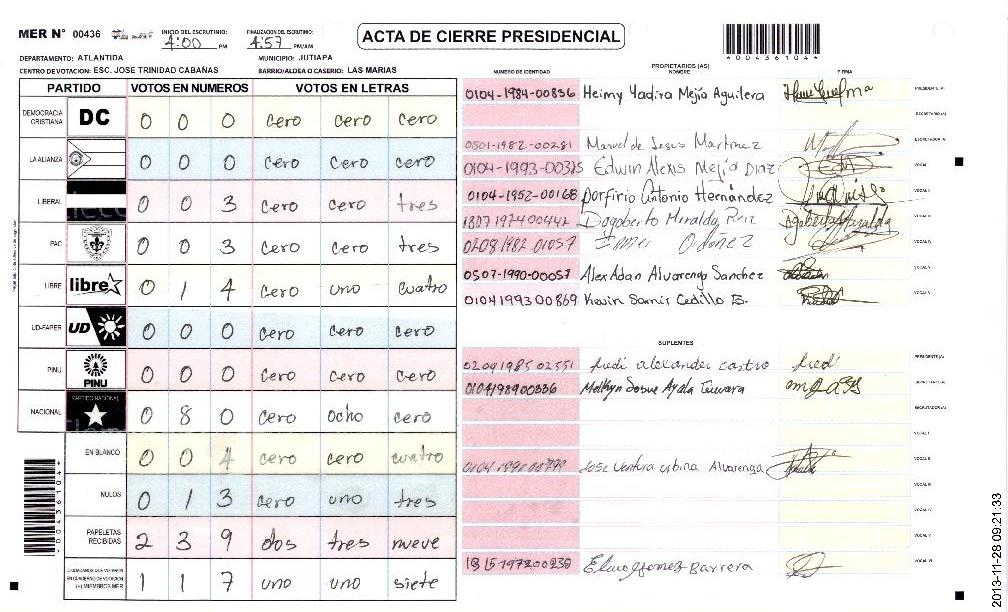 MER N° 00436
INICIO DEL ESCRUTINIO: 4:00 PM
FINALIZACION DEL ESCRUTINIO: 4:57 PM/AM
ACTA DE CIERRE PRESIDENCIAL
*00436104*
DEPARTAMENTO: ATLANTIDA
MUNICIPIO: JUTIAPA
CENTRO DE VOTACION: ESC. JOSE TRINIDAD CABAÑAS
BARRIO/ALDEA O CASERIO: LAS MARIAS
PARTIDO VOTOS EN NUMEROS VOTOS EN LETRAS
DEMOCRACIA CRISTIANA DC 0 0 0 cero cero cero
LA ALIANZA 0 0 0 cero cero cero
LIBERAL 0 0 3 cero cero tres
PAC 0 0 3 cero cero tres
LIBRE libre 0 1 4 cero uno cuatro
UD-FAPER UD 0 0 0 cero cero cero
PINU PINU 0 0 0 cero cero cero
NACIONAL PARTIDO NACIONAL 0 8 0 cero ocho cero
EN BLANCO 0 0 4 cero cero cuatro
NULOS 0 1 3 cero uno tres
PAPELETAS RECIBIDAS 2 3 9 dos tres nueve
CIUDADANOS QUE VOTARON EN CUADERNO DE VOTACION (+) MIEMBROS MER 1 1 7 uno uno siete
*00436104*
PROPIETARIOS (AS)
NUMERO DE IDENTIDAD NOMBRE FIRMA
0104-1984-00836 Heimy Yadira Mejia Aguilera PRESIDENTE (A)
SECRETARIO (A)
0501-1982-00281 Manuel de Jesus Martinez ESCRUTADOR (A)
0104-1993-00325 Edwin Alexis Mejia Diaz VOCAL I
0104-1952-00168 Porfirio Antonio Hernández VOCAL II
1807 1974 00442 Dogoberto Miralda Ruiz VOCAL III
0208 1982 01057 Imer Ordoñez VOCAL IV
0507-1990-00057 Alex Adan Alvarenga Sanchez VOCAL V
0104 1993 00869 Kevin Samir Cedillo B. VOCAL VI
SUPLENTES
0209 1985 02551 fredi alexander castro fredi PRESIDENTE (A)
0104198900336 Josue Ayala Guevara SECRETARIO (A)
ESCRUTADOR (A)
VOCAL I
Jose Ventura urbina Alvarenga VOCAL II
VOCAL III
VOCAL IV
VOCAL V
1815197200239 Gomez Barrera VOCAL VI
2013-11-28 09:21:33